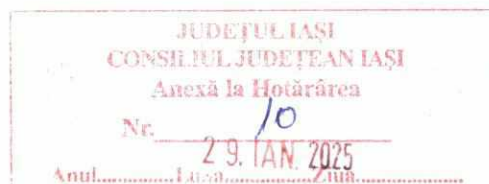 JUDEȚUL IAȘI
CONSILIUL JUDEȚEAN IAȘI
Anexă la Hotărârea
Nr. 10
29. IAN. 2025
Anul............Luna............Ziua............